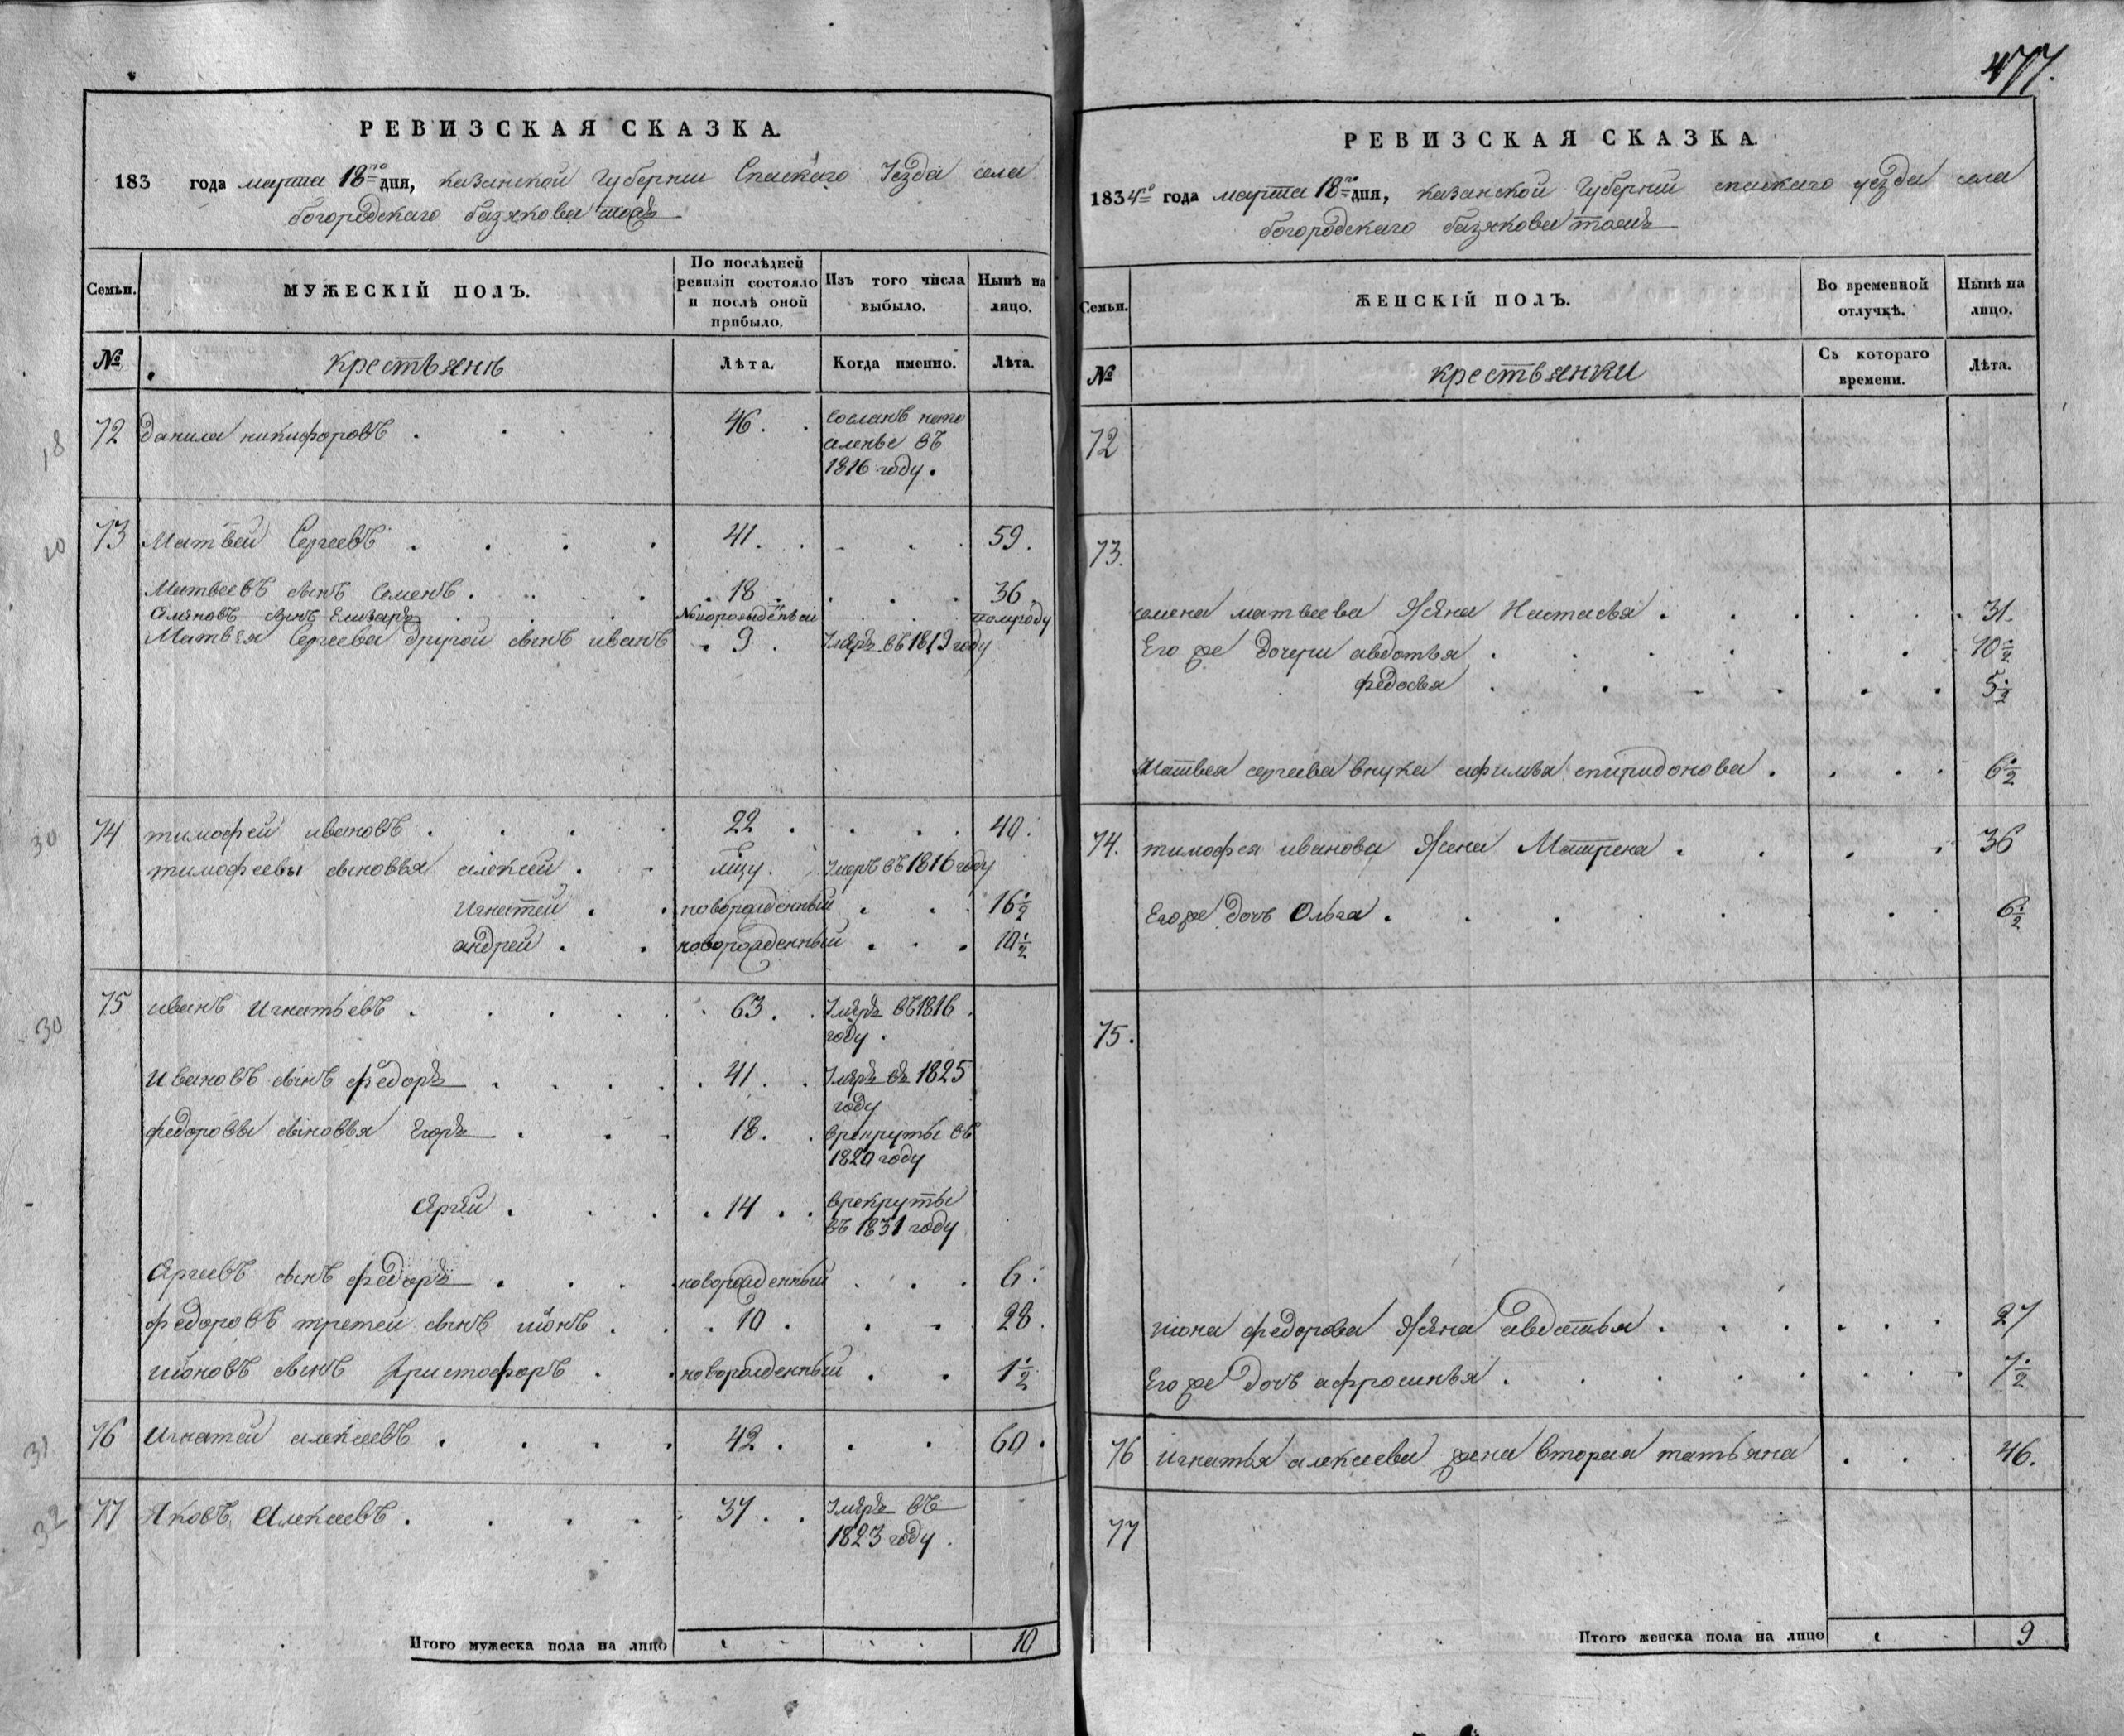 477.
РЕВИЗСКАЯ СКАЗКА.
183 года марта 18го дня, казанской Губернии Спаскаго Уезда села
богородскаго базякова тожъ
Семьи. МУЖЕСКІЙ ПОЛЪ. По послѣдней ревизіи состояло и послѣ оной прибыло. Изъ того числа выбыло. Нынѣ на лицо.
№ крестьянѣ Лѣта. Когда именно. Лѣта.
72 Данила никифоровъ 46. Сосланъ напо
селенье въ
1816 году.
73 Матвей Сергеевъ 41. 59.
Матвеевъ сынъ Семенъ 18 36
Семѣновъ сынъ Елизаръ Новорожденный полгоду
Матвея Сергеева другой сынъ иванъ 9 Умѣръ въ 1819 году
74 тимофей ивановъ 22 40.
тимофеевы сыновья алексей Умеръ въ 1816 году
Игнатей новорожденный 16 1/2
андрей новорожденный 10 1/2
75 иванъ Игнатьевъ 63. Умѣръ въ 1816
году.
Ивановъ сынъ федоръ 41. Умѣръ въ 1825
году
федоровы сыновья Егоръ 18. врекруты въ
1820 году
Сѣргѣй 14 врекруты
въ 1831 году
Сѣргеевъ сынъ федоръ новорожденный 6.
федоровъ третей сынъ июнъ 10 28.
июновъ сынъ Христофоръ новорожденный 1 1/2
76 Игнатей алексеевъ 42. 60.
77 Яковъ Алексеевъ 37. Умѣръ въ
1823 году.
Итого мужеска пола на лицо 10
18
20
30
30
31
32
РЕВИЗСКАЯ СКАЗКА.
1834го года марта 18го дня, казанской Губерний спаскаго уезда села
богородскаго базякова тожъ
Семьи. ЖЕНСКІЙ ПОЛЪ. Во временной отлучкѣ. Нынѣ на лицо.
№ крестьянки Съ котораго времени. Лѣта.
72
73.
семена матвеева Жѣна Настасья 31.
Его же дочери авдотья 10 1/2
федосья 5 1/2
Матвея сергеева внука афимья спиридонова 6 1/2
74. тимофея иванова Жена Матрена 36
Его же дочь Ольга 6 1/2
75.
июна федорова Жѣна авдотья 27
Его же дочь афросинья 7 1/2
76 игнатья алексеева жена вторая татьяна 46.
77
Итого женска пола на лицо 9